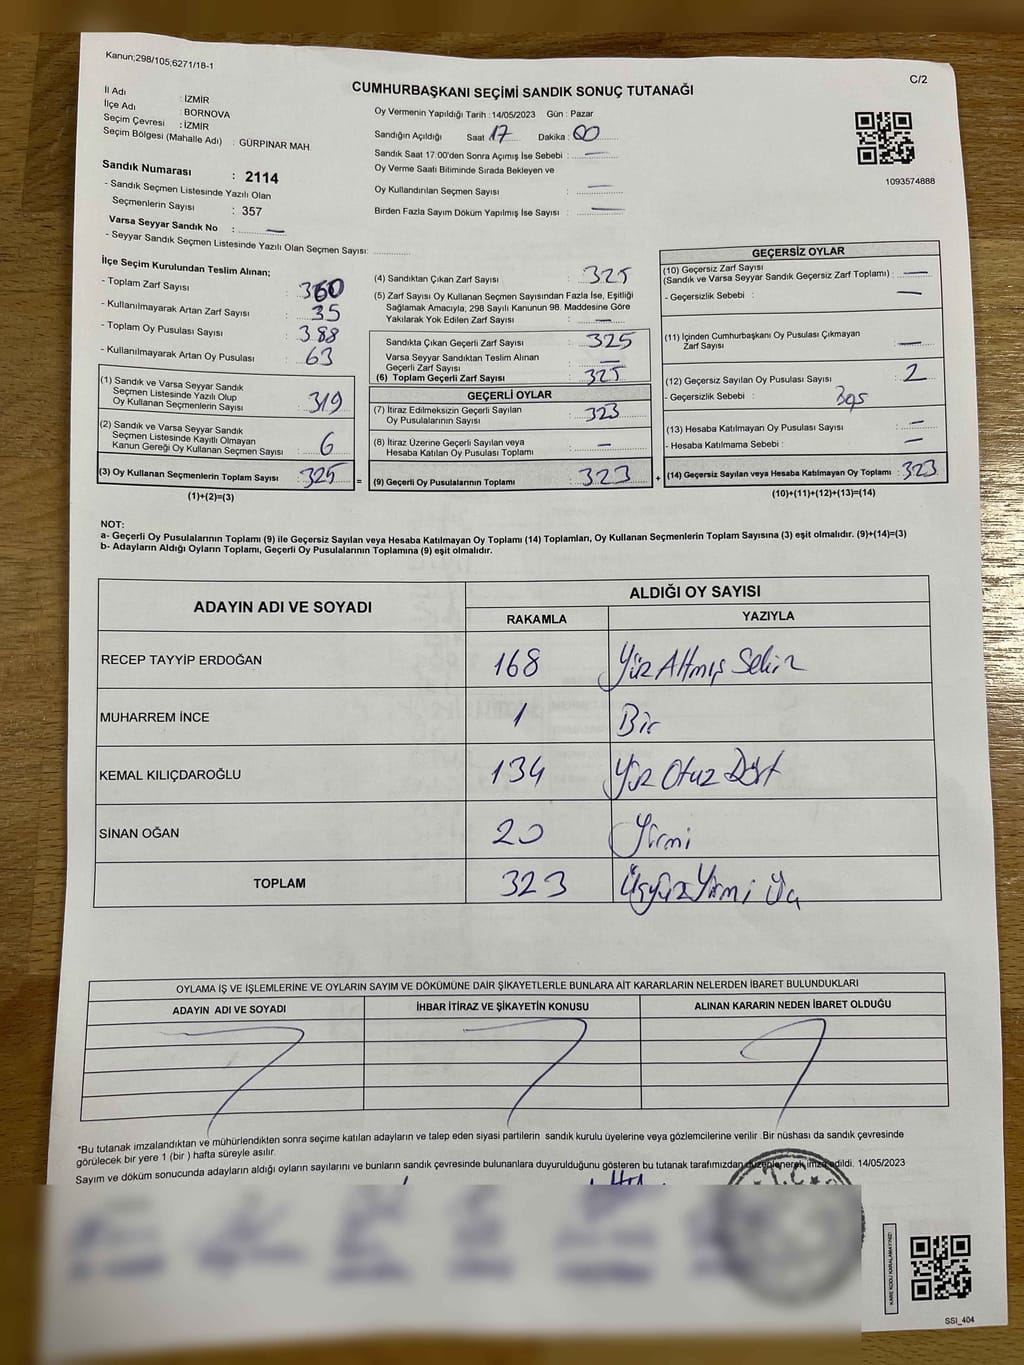 Kanun;298/105;6271/18-1
C/2
CUMHURBAŞKANI SEÇİMİ SANDIK SONUÇ TUTANAĞI
İl Adı : İZMİR
İlçe Adı : BORNOVA
Seçim Çevresi : İZMİR
Seçim Bölgesi (Mahalle Adı) : GÜRPINAR MAH.
Sandık Numarası : 2114
- Sandık Seçmen Listesinde Yazılı Olan
Seçmenlerin Sayısı : 357
Varsa Seyyar Sandık No : —
- Seyyar Sandık Seçmen Listesinde Yazılı Olan Seçmen Sayısı:
Oy Vermenin Yapıldığı Tarih : 14/05/2023 Gün : Pazar
Sandığın Açıldığı Saat 17 Dakika : 00
Sandık Saat 17:00'den Sonra Açımış İse Sebebi : —
Oy Verme Saati Bitiminde Sırada Bekleyen ve
Oy Kullandırılan Seçmen Sayısı : —
Birden Fazla Sayım Döküm Yapılmış İse Sayısı : —
1093574888
İlçe Seçim Kurulundan Teslim Alınan;
- Toplam Zarf Sayısı : 360
- Kullanılmayarak Artan Zarf Sayısı : 35
- Toplam Oy Pusulası Sayısı : 388
- Kullanılmayarak Artan Oy Pusulası : 63
(1) Sandık ve Varsa Seyyar Sandık
Seçmen Listesinde Yazılı Olup
Oy Kullanan Seçmenlerin Sayısı : 319
(2) Sandık ve Varsa Seyyar Sandık
Seçmen Listesinde Kayıtlı Olmayan
Kanun Gereği Oy Kullanan Seçmen Sayısı : 6
(3) Oy Kullanan Seçmenlerin Toplam Sayısı : 325 =
(1)+(2)=(3)
(4) Sandıktan Çıkan Zarf Sayısı : 325
(5) Zarf Sayısı Oy Kullanan Seçmen Sayısından Fazla İse, Eşitliği
Sağlamak Amacıyla; 298 Sayılı Kanunun 98. Maddesine Göre
Yakılarak Yok Edilen Zarf Sayısı : —
Sandıkta Çıkan Geçerli Zarf Sayısı : 325
Varsa Seyyar Sandıktan Teslim Alınan
Geçerli Zarf Sayısı : —
(6) Toplam Geçerli Zarf Sayısı : 325
GEÇERLİ OYLAR
(7) İtiraz Edilmeksizin Geçerli Sayılan
Oy Pusulalarının Sayısı : 323
(8) İtiraz Üzerine Geçerli Sayılan veya
Hesaba Katılan Oy Pusulası Toplamı : —
(9) Geçerli Oy Pusulalarının Toplamı : 323 +
GEÇERSİZ OYLAR
(10) Geçersiz Zarf Sayısı
(Sandık ve Varsa Seyyar Sandık Geçersiz Zarf Toplamı) : —
- Geçersizlik Sebebi : —
(11) İçinden Cumhurbaşkanı Oy Pusulası Çıkmayan
Zarf Sayısı : —
(12) Geçersiz Sayılan Oy Pusulası Sayısı : 2
- Geçersizlik Sebebi :
(13) Hesaba Katılmayan Oy Pusulası Sayısı : —
- Hesaba Katılmama Sebebi : —
(14) Geçersiz Sayılan veya Hesaba Katılmayan Oy Toplamı : 323
(10)+(11)+(12)+(13)=(14)
NOT:
a- Geçerli Oy Pusulalarının Toplamı (9) ile Geçersiz Sayılan veya Hesaba Katılmayan Oy Toplamı (14) Toplamları, Oy Kullanan Seçmenlerin Toplam Sayısına (3) eşit olmalıdır. (9)+(14)=(3)
b- Adayların Aldığı Oyların Toplamı, Geçerli Oy Pusulalarının Toplamına (9) eşit olmalıdır.
ADAYIN ADI VE SOYADI
ALDIĞI OY SAYISI
RAKAMLA YAZIYLA
RECEP TAYYİP ERDOĞAN 168 Yüz Altmış Sekiz
MUHARREM İNCE 1 Bir
KEMAL KILIÇDAROĞLU 134 Yüz Otuz Dört
SİNAN OĞAN 20 Yirmi
TOPLAM 323 Üçyüz Yirmi Üç
OYLAMA İŞ VE İŞLEMLERİNE VE OYLARIN SAYIM VE DÖKÜMÜNE DAİR ŞİKAYETLERLE BUNLARA AİT KARARLARIN NELERDEN İBARET BULUNDUKLARI
ADAYIN ADI VE SOYADI İHBAR İTİRAZ VE ŞİKAYETİN KONUSU ALINAN KARARIN NEDEN İBARET OLDUĞU
*Bu tutanak imzalandıktan ve mühürlendikten sonra seçime katılan adayların ve talep eden siyasi partilerin sandık kurulu üyelerine veya gözlemcilerine verilir .Bir nüshası da sandık çevresinde
görülecek bir yere 1 (bir ) hafta süreyle asılır.
Sayım ve döküm sonucunda adayların aldığı oyların sayılarını ve bunların sandık çevresinde bulunanlara duyurulduğunu gösteren bu tutanak tarafımızdan düzenlenerek imza edildi. 14/05/2023
T.C
KARE KODU KARALAMAYINIZ!
SSI_404